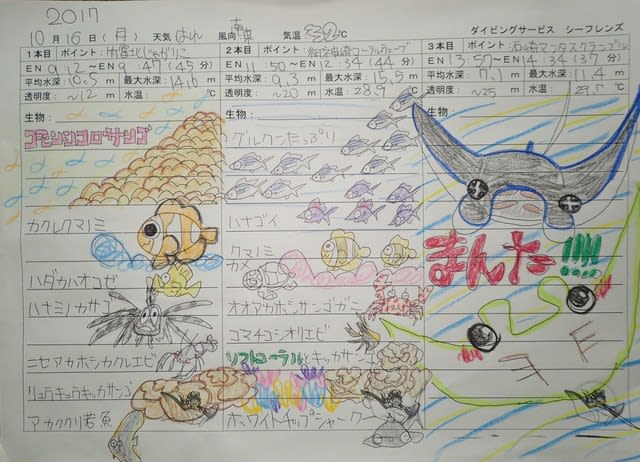 2017
10月16日(月) 天気 はれ 風向 南東 気温 32℃
ダイビングサービス シーフレンズ
1本目 ポイント：竹富北じゃがりこ
EN 9:12〜EX 9:47(45分)
平均水深：10.5m 最大水深：14.6m
透明度：〜12m 水温：℃
生物：
コモンシコロサンゴ
カクレクマノミ
ハダカハオコゼ
ハナミノカサゴ
ニセアカホシカクレエビ
リュウキュウキッカサンゴ
アカククリ若魚
2本目 ポイント：
EN 11:50〜EX 12:34(44分)
平均水深：9.3m 最大水深：15.5m
透明度：〜20m 水温：28.9℃
生物：
グルクンたっぷり
ハナゴイ
クマノミ
カメ
オオアカホシサンゴガニ
コマチコシオリエビ
ソフトコーラルとキッカサンゴ
ホワイトチップシャーク
3本目 ポイント：石崎マンタスクランブル
EN 13:57〜EX 14:34(37分)
平均水深：7.1m 最大水深：11.4m
透明度：〜25m 水温：29.5℃
生物：
まんたー!!!!